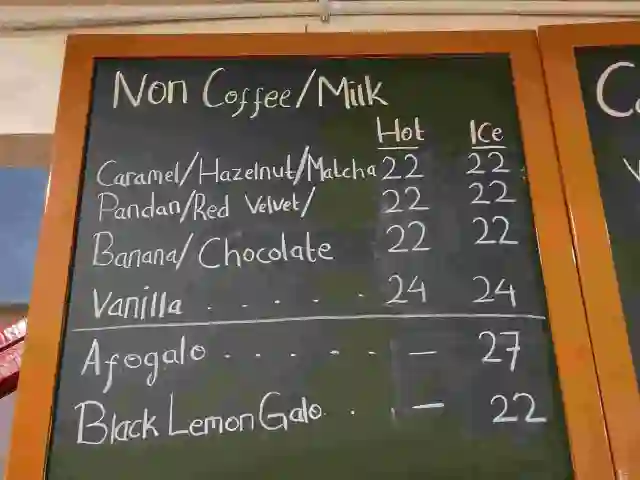 Non Coffee/Milk
Hot Ice
Caramel/Hazelnut/Matcha 22 22
Pandan/Red Velvet/ 22 22
Banana/Chocolate 22 22
Vanilla . . . . . 24 24
Afogalo . . . . . — 27
Black Lemon Galo . . — 22